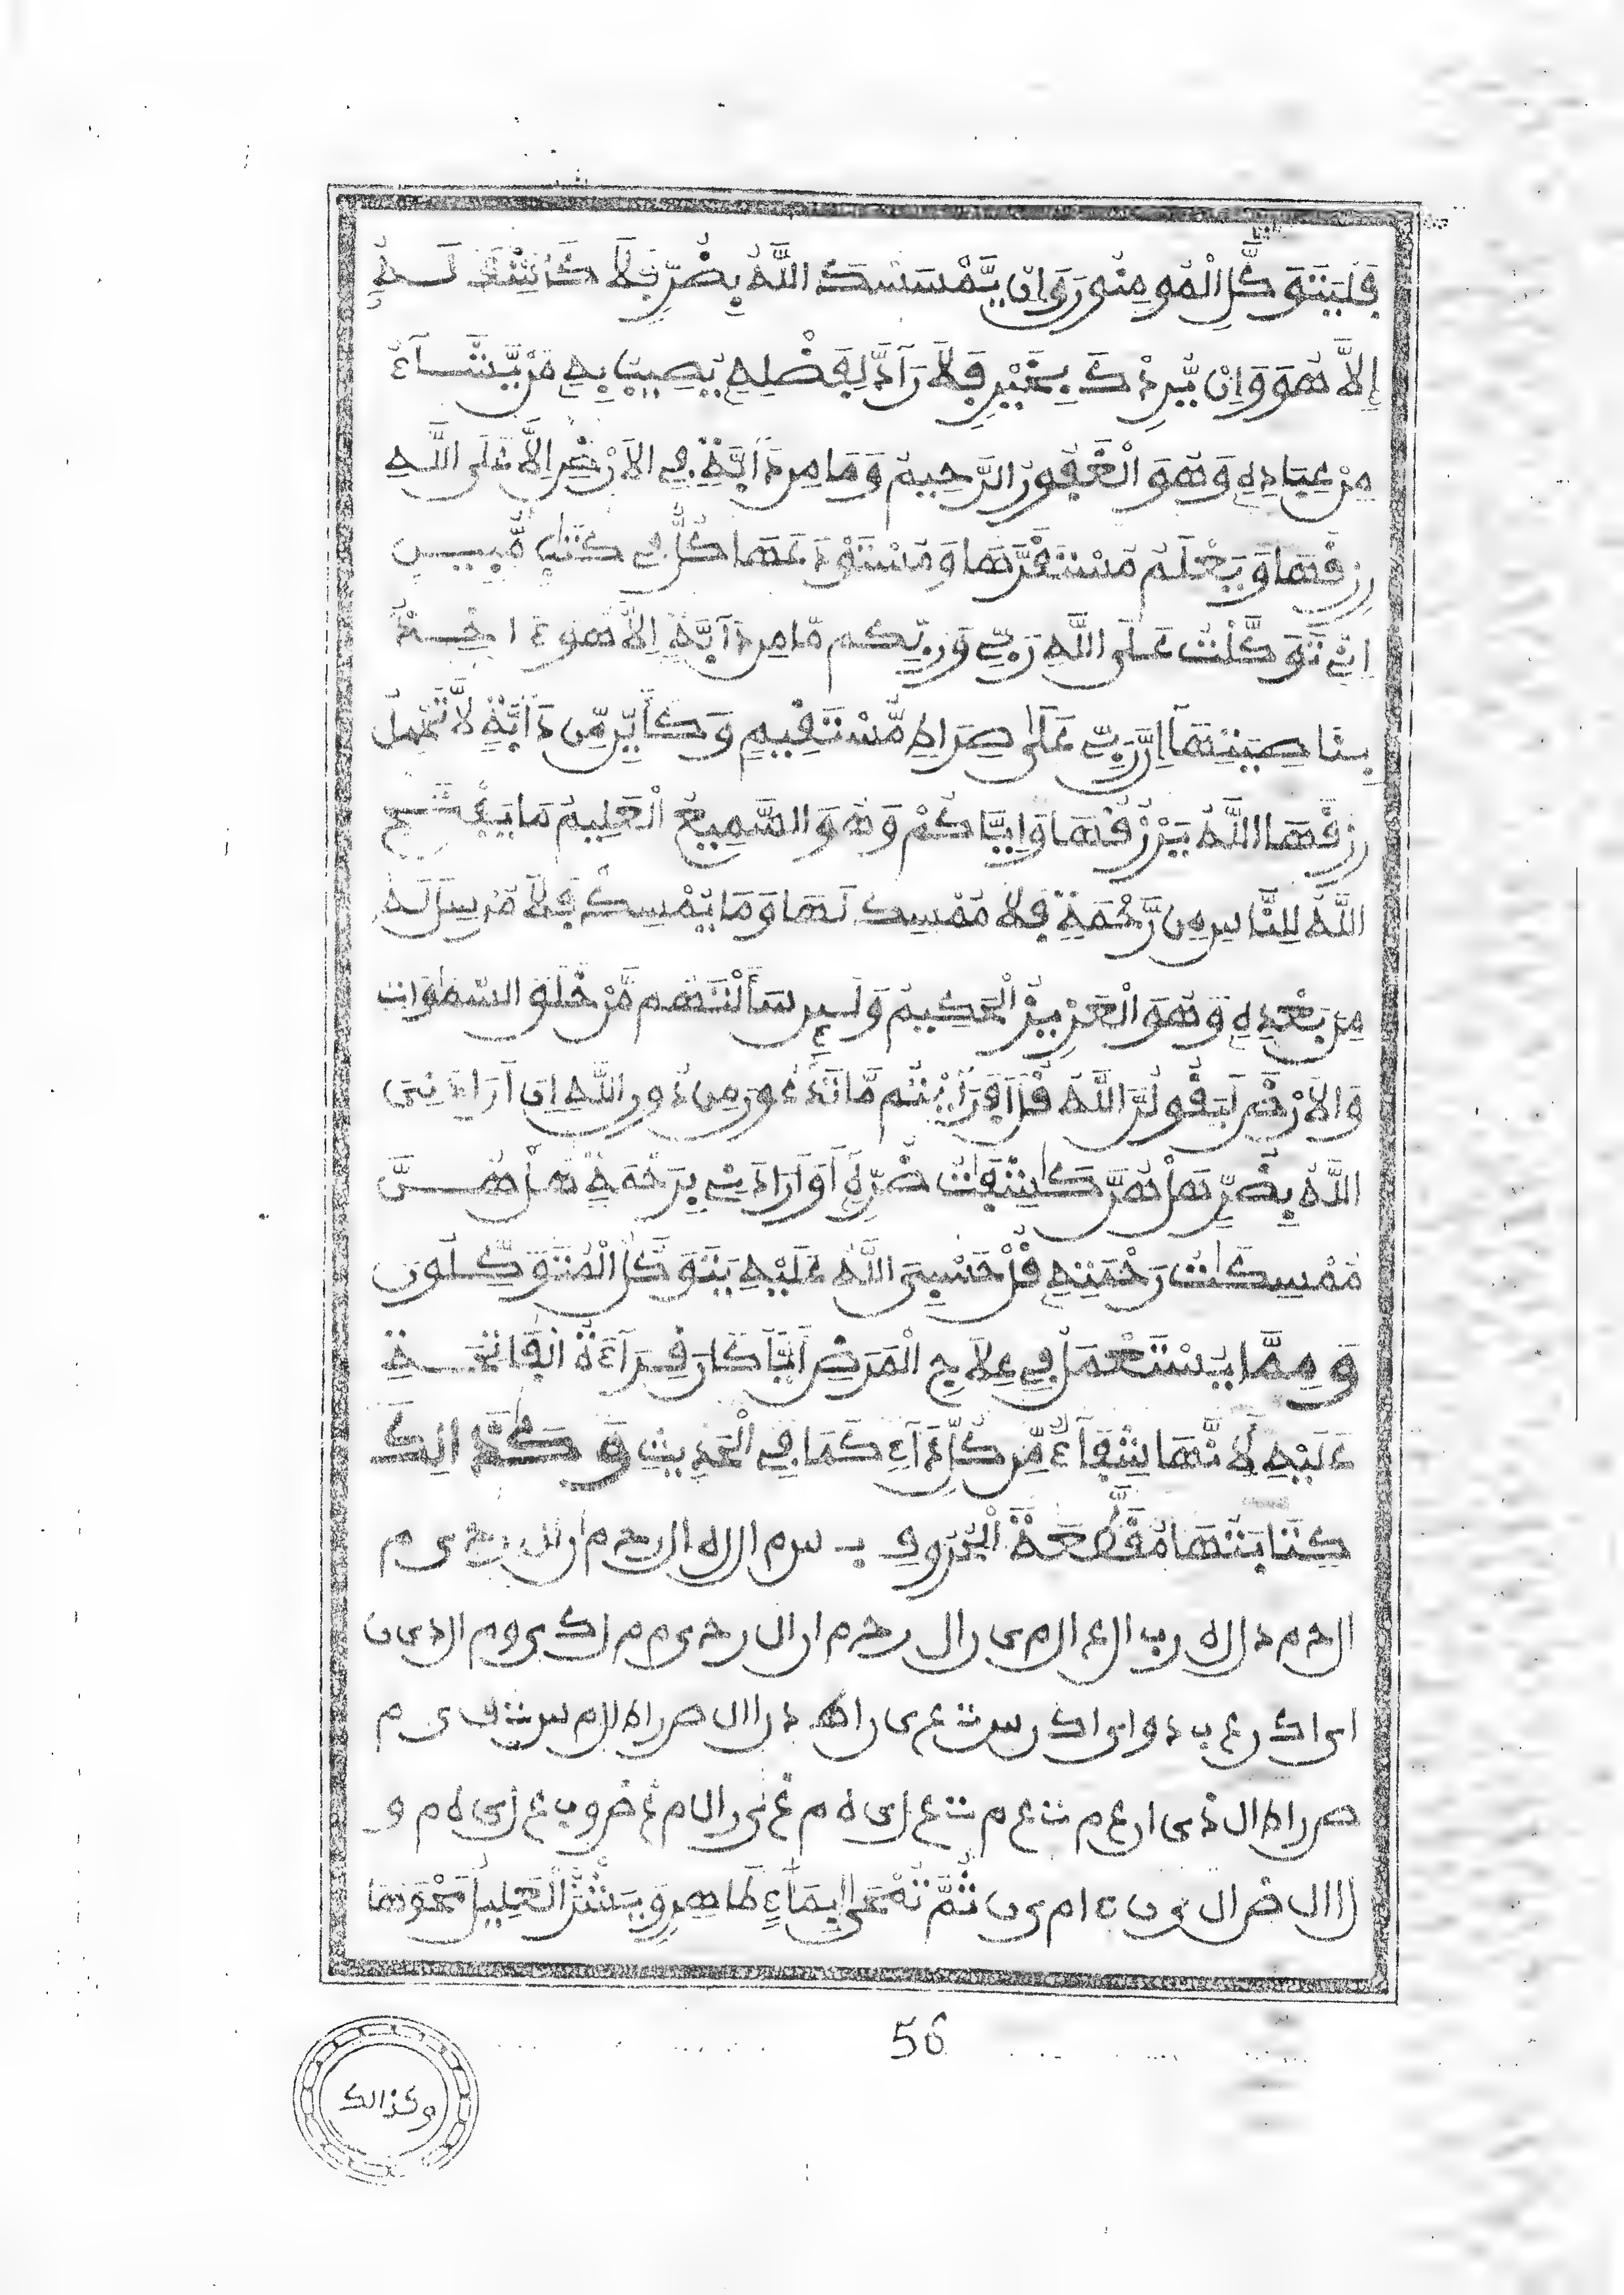 فَلْيَتَوَكَّلِ الْمُومِنُونَ وَإِنْ يَّمْسَسْكَ اللَّهُ بِضُرٍّ فَلَا كَاشِفَ لَهُ
إِلَّا هُوَ وَإِنْ يُّرِدْكَ بِخَيْرٍ فَلَا رَآدَّ لِفَضْلِهِ يُصِيبُ بِهِ مَنْ يَّشَآءُ
مِنْ عِبَادِهِ وَهُوَ الْغَفُورُ الرَّحِيمُ وَمَا مِن دَآبَّةٍ فِي الَارْضِ إِلَّا عَلَى اللَّهِ
رِزْقُهَا وَيَعْلَمُ مُسْتَقَرَّهَا وَمُسْتَوْدَعَهَا كُلٌّ فِي كِتَٰبٍ مُّبِينٍ
اِنِّي تَوَكَّلْتُ عَلَى اللَّهِ رَبِّي وَرَبِّكُم مَّا مِن دَآبَّةٍ اِلَّا هُوَ ءَاخِذٌ
بِنَاصِيَتِهَآ اِنَّ رَبِّي عَلَىٰ صِرَاطٍ مُّسْتَقِيمٍ وَكَأَيِّن مِّن دَآبَّةٍ لَّا تَحْمِلُ
رِزْقَهَا اللَّهُ يَرْزُقُهَا وَإِيَّاكُمْ وَهُوَ السَّمِيعُ الْعَلِيمُ مَا يَفْتَحِ
اللَّهُ لِلنَّاسِ مِن رَّحْمَةٍ فَلَا مُمْسِكَ لَهَا وَمَا يُمْسِكْ فَلَا مُرْسِلَ لَهُ
مِن بَعْدِهِ وَهُوَ الْعَزِيزُ الْحَكِيمُ وَلَئِن سَأَلْتَهُم مَّنْ خَلَقَ السَّمَٰوَاتِ
وَالَارْضَ لَيَقُولُنَّ اللَّهُ قُلَ اَفَرَأَيْتُم مَّا تَدْعُونَ مِن دُونِ اللَّهِ إِنَ اَرَادَنِيَ
اللَّهُ بِضُرٍّ هَلْ هُنَّ كَٰشِفَٰتُ ضُرِّهِ أَوَ اَرَادَنِي بِرَحْمَةٍ هَلْ هُنَّ
مُمْسِكَٰتُ رَحْمَتِهِ قُلْ حَسْبِيَ اللَّهُ عَلَيْهِ يَتَوَكَّلُ الْمُتَوَكِّلُونَ
وَمِمَّا يُسْتَعْمَلُ فِي عِلَاجِ الْمَرَضِ أَيًّا كَانَ قِرَآءَةُ الْفَاتِحَةِ
عَلَيْهِ لِأَنَّهَا شِفَآءٌ مِّن كُلِّ دَآءٍ كَمَا فِي الْحَدِيثِ وَكَذَالِكَ
كِتَابَتُهَا مُقَطَّعَةَ الْحُرُوفِ ب س م ا ل ل ه ا ل ر ح م ا ن ا ل ر ح ى م
ا ل ح م د ل ل ه ر ب ا ل ع ا ل م ى ن ا ل ر ح م ا ن ا ل ر ح ى م م ل ك ى و م ا ل د ى ن
ا ى ا ك ن ع ب د و ا ى ا ك ن س ت ع ى ن ا ه د ن ا ا ل ص ر ا ط ا ل م س ت ق ى م
ص ر ا ط ا ل ذ ى ن ا ن ع م ت ع ل ى ه م غ ى ر ا ل م غ ض و ب ع ل ى ه م و
ل ا ا ل ض ا ل ى ن ء ا م ى ن ثُمَّ تُمْحَىٰ بِمَآءٍ طَاهِرٍ وَيَشْرَبُ الْعَلِيلُ مَحْوَهَا
56
وكذالك